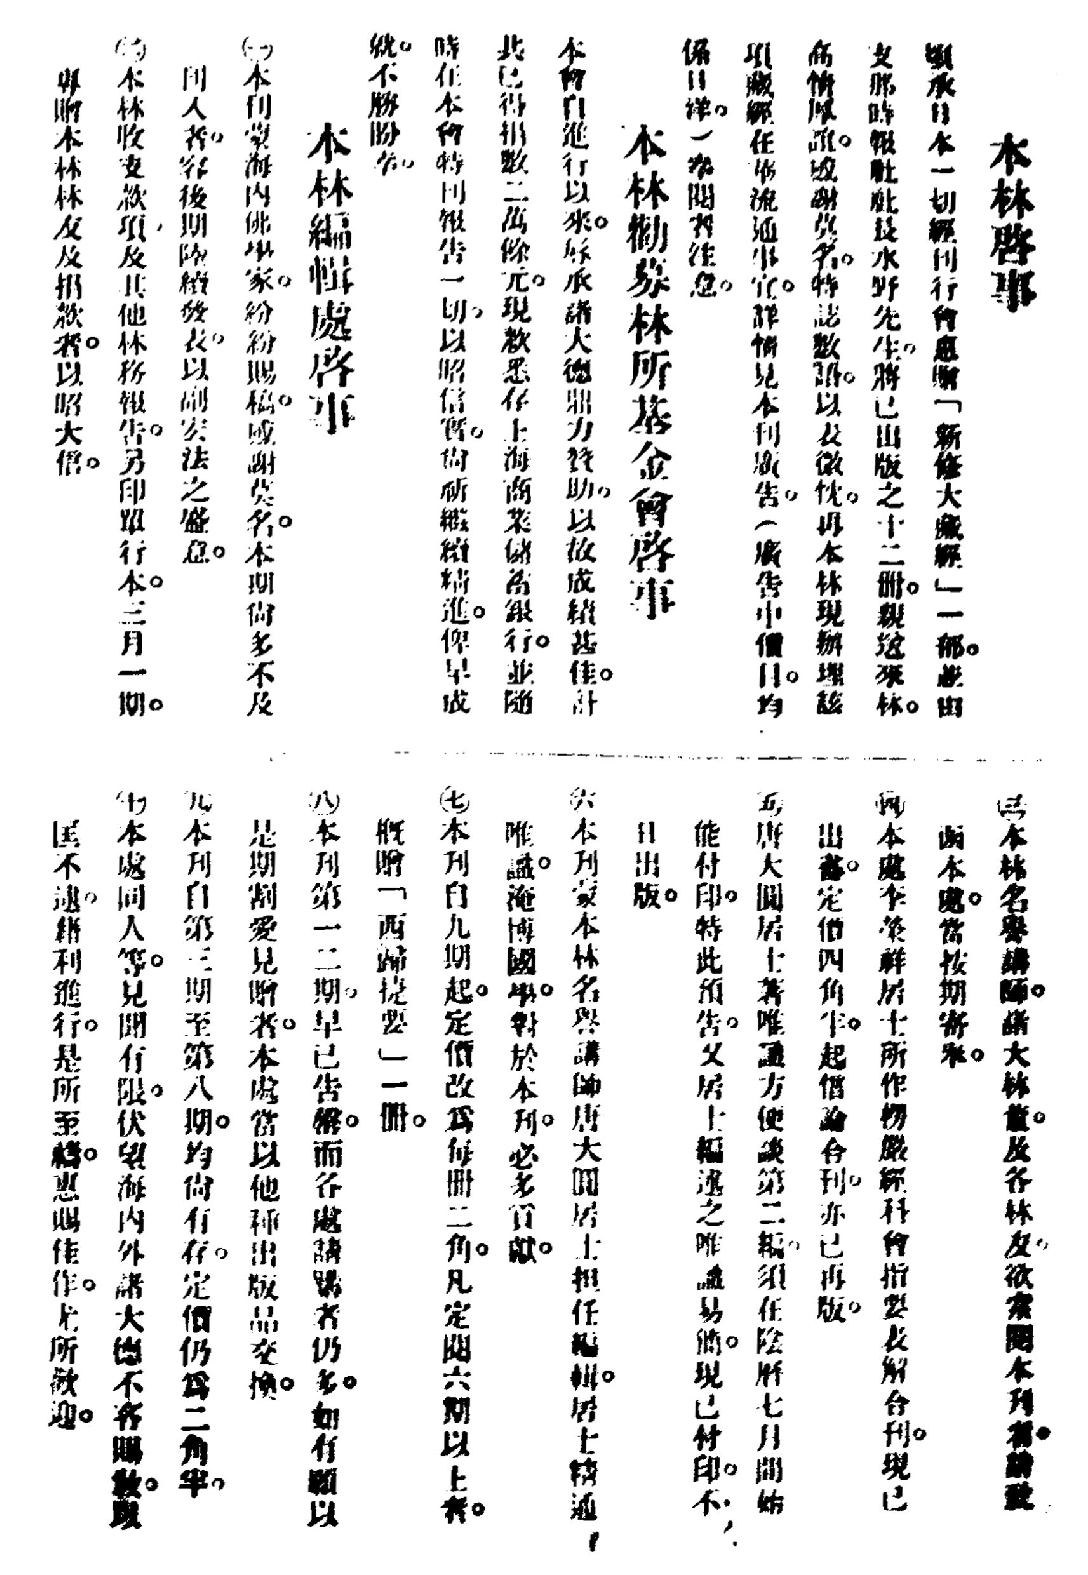 本林啓事
頃承日本一切經刊行會惠贈「新修大藏經」一部。並由
支那時報社社長水野先生。將已出版之十二册。親送來林。
高情厚誼。感謝莫名。特誌數語。以表微忱。再本林現辦理該
項藏經在華流通事宜。詳情見本刊廣告。（廣告中價目。均
係日洋。）來閱者注意。
本林勸募林所基金會啓事
本會自進行以來。辱承諸大德鼎力贊助。以故成績甚佳。計
共已得捐數二萬餘元。現款悉存上海商業儲蓄銀行。並隨
時在本會特刊報告一切。以昭信實。尚祈繼續精進。俾早成
就。不勝盼幸。
本林編輯處啓事
㈠本刊蒙海內佛學家。紛紛賜稿。感謝莫名。本期尚多不及
刊入者。容後期陸續發表。以副宏法之盛意。
㈡本林收支款項。及其他林務報告。另印單行本。三月一期。
專贈本林林友及捐款者。以昭大信。
㈢本林名譽講師。諸大林董。及各林友。欲索閱本刊者。請致
函本處。當按期寄奉。
㈣本處李榮祥居士所作楞嚴經科會指要表解合刊。現已
出書。定價四角半。起信論合刊。亦已再版。
㈤唐大圓居士著唯識方便談第二編。須在陰曆七月間始
能付印。特此預告。又居士編述之唯識易簡。現已付印。不
日出版。
㈥本刊蒙本林名譽講師唐大圓居士担任編輯。居士精通
唯識。淹博國學。對於本刊。必多貢獻。
㈦本刊自九期起。定價改爲每册二角。凡定閱六期以上者。
概贈「西歸提要」一册。
㈧本刊第一二期。早已告罄。而各處請購者仍多。如有願以
是期割愛見贈者。本處當以他種出版品交換。
㈨本刊自第三期至第八期。均尚有存。定價仍爲二角半。
㈩本處同人等。見聞有限。伏望海內外諸大德不吝賜教。以
匡不逮。藉利進行。是所至禱。惠賜佳作。尤所歡迎。